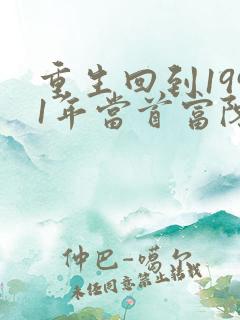 重生回到199
1年當首富陳
仲巴-噶尔
未经同意禁止转载